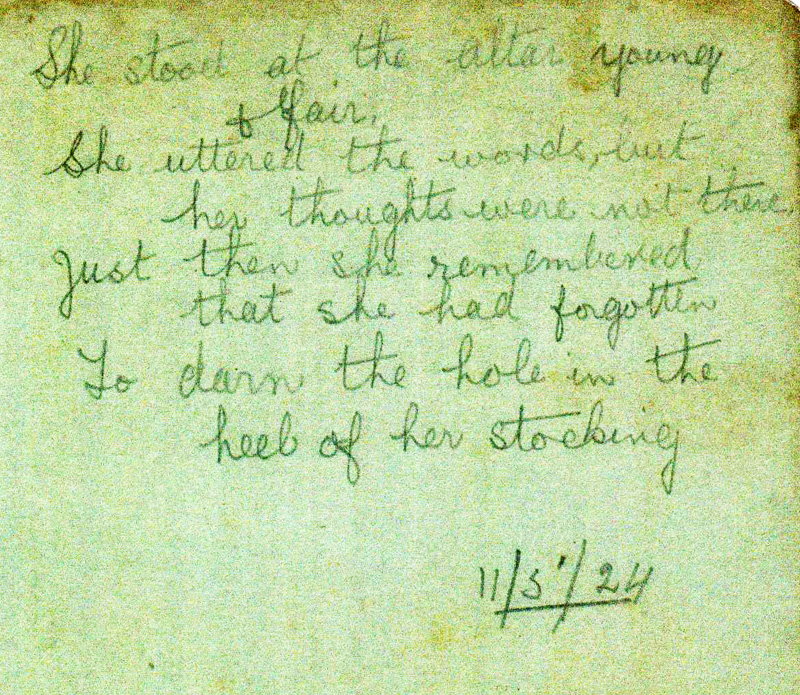 She stood at the altar young
& fair,
She uttered the words, but
her thoughts were not there.
Just then she remembered
that she had forgotten
To darn the hole in the
heel of her stocking
11/5/24